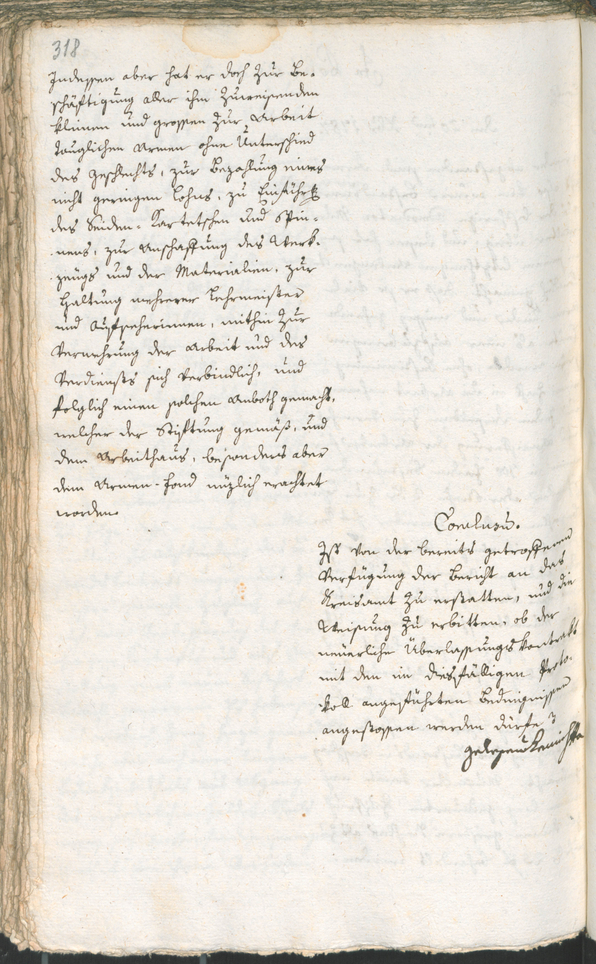 318
Indessen aber hat er doch zur Be-
schäftigung aller ihm zuweisenden
kleinen und grossen zur Arbeit
tauglichen Armen ohne Unterschied
des Geschlechts, zur Bezahlung eines
nicht geringen Lohns, zu Einführung
des Seiden-Kartetschen und Spin-
nens, zur Anschaffung des Werk-
zeugs und der Materialien, zur
Haltung mehrerer Lehrmeister
und Aufseherinnen, mithin zur
Vermehrung der Arbeit und des
Verdiensts sich verbindlich, und
folglich einen solchen Anboth gemacht,
welcher der Stiftung gemäß, und
dem Arbeithaus, besonders aber
dem Armen-Fond nüzlich erachtet
worden.
Conclusum.
Ist von der bereits getroffenen
Verfügung der Bericht an das
Kreisamt zu erstatten, und die
Weisung zu erbitten, ob der
neuerliche Überlassungskontrakt
mit den im diesfälligen Proto-
koll angeführten Bedingnissen
angestossen werden dürfe?